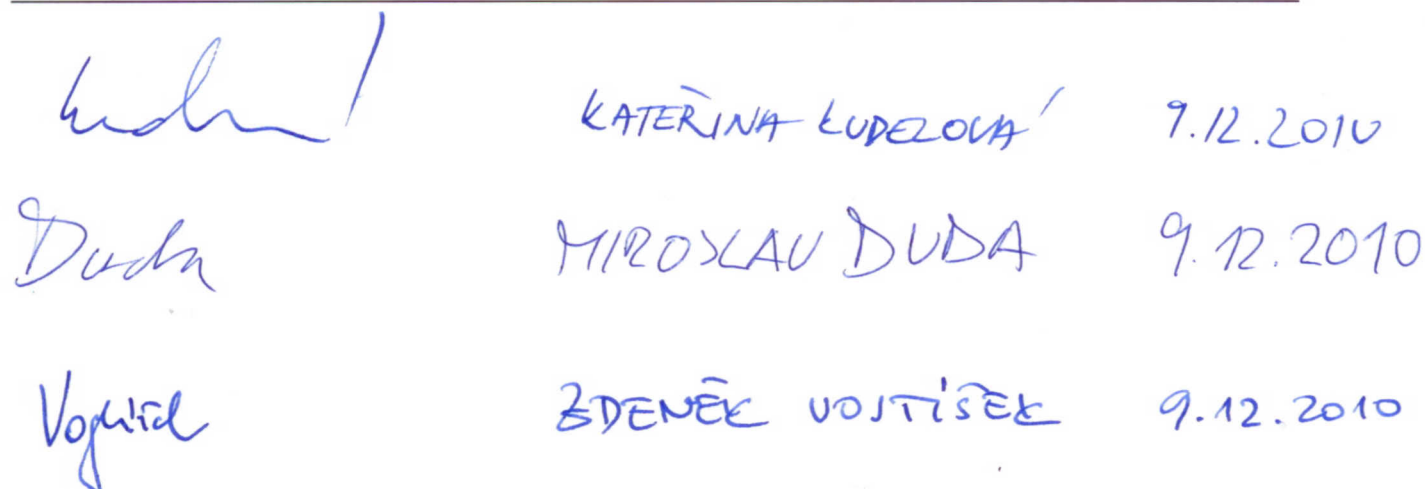 KATEŘINA KUDEROVÁ 9.12.2010
Duda MIROSLAV DUDA 9.12.2010
Vojtíšek ZDENĚK VOJTÍŠEK 9.12.2010